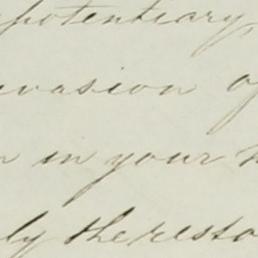 potentiary,
vasion of
in your
ly the resto